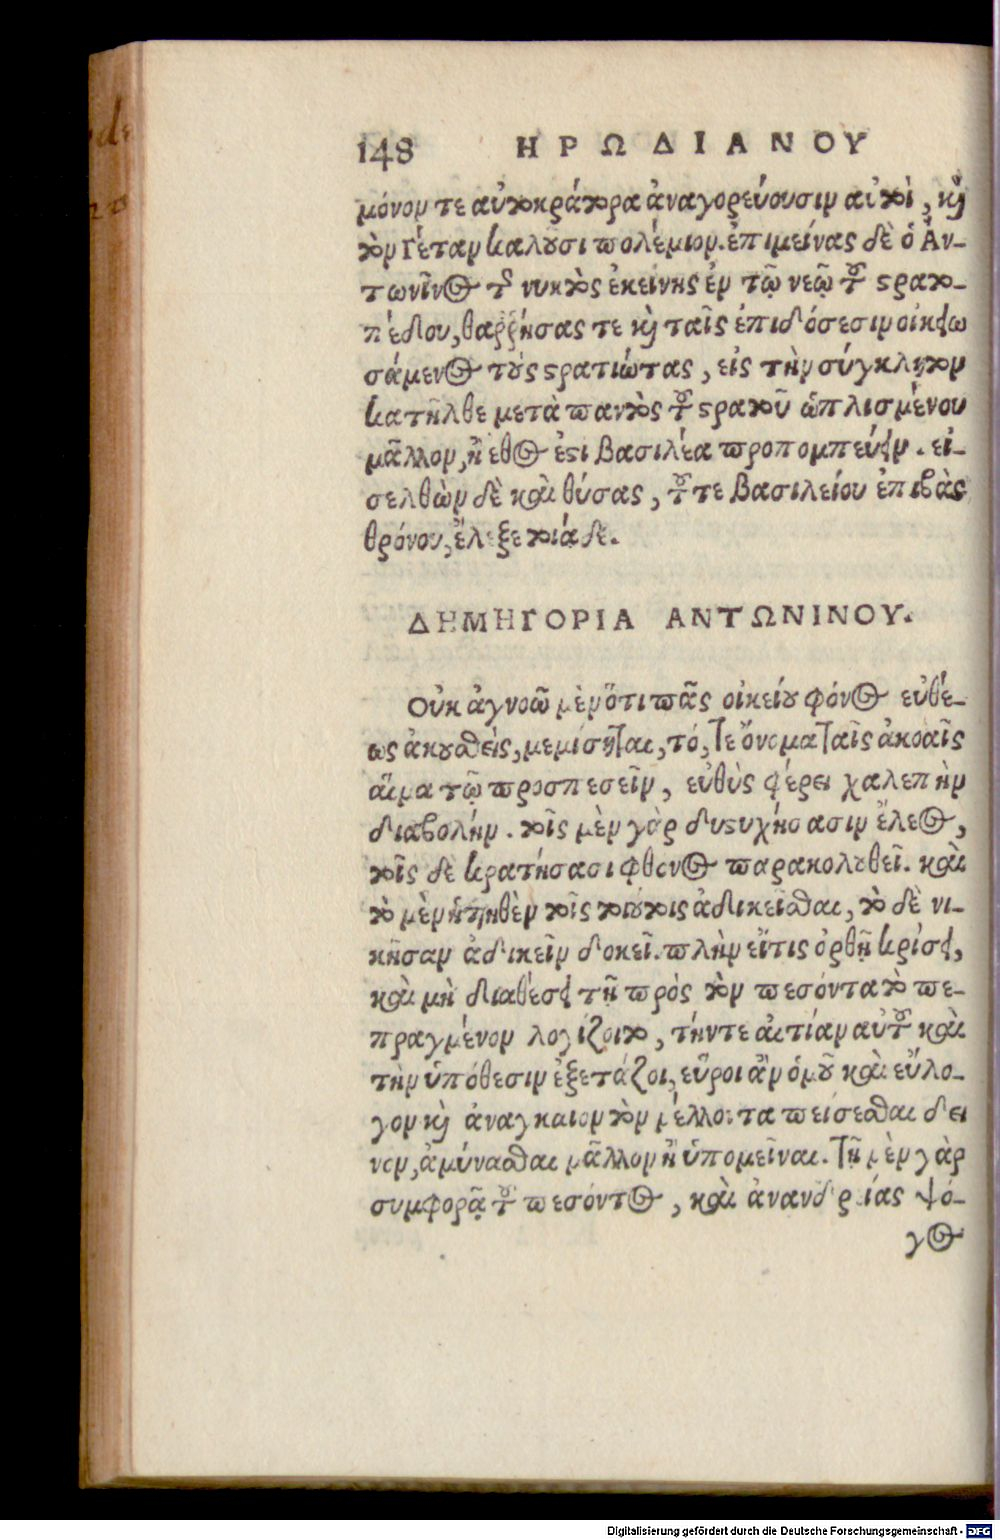 148 ΗΡΩΔΙΑΝΟΥ
μόνον τε αὐτοκράτορα ἀναγορεύουσιν αὐτοὶ, καὶ
τὸν Γέταν καλοῦσι πολέμιον. ἐπιμείνας δὲ ὁ Ἀν-
τωνῖνος τῆς νυκτὸς ἐκείνης ἐν τῷ νεῷ τοῦ στρατο-
πέδου, θαῤῥήσας τε καὶ ταῖς ἐπιδόσεσιν οἰκειω
σάμενος τοὺς στρατιώτας, εἰς τὴν σύγκλητον
κατῆλθε μετὰ παντὸς τοῦ στρατοῦ ὡπλισμένου
μᾶλλον, ἢ ἔθος ἐστὶ βασιλέα προπομπεύειν. εἰ-
σελθὼν δὲ καὶ θύσας, τοῦ τε βασιλείου ἐπιβὰς
θρόνου, ἔλεξε τοιάδε.
ΔΗΜΗΓΟΡΙΑ ΑΝΤΩΝΙΝΟΥ.
Οὐκ ἀγνοῶ μὲν ὅτι πᾶς οἰκείου φόνος εὐθέ-
ως ἀκουσθεὶς, μεμίσηται, τό, τε ὄνομα ταῖς ἀκοαῖς
ἅμα τῷ προσπεσεῖν, εὐθὺς φέρει χαλεπὴν
διαβολήν. τοῖς μὲν γὰρ δυστυχήσασιν ἔλεος,
τοῖς δὲ κρατήσασι φθόνος παρακολουθεῖ. καὶ
τὸ μὲν ἡττηθὲν τοῖς τοιούτοις ἀδικεῖσθαι, τὸ δὲ νι-
κῆσαν ἀδικεῖν δοκεῖ. πλὴν εἴτις ὀρθῇ κρίσει,
καὶ μὴ διαθέσει τῇ πρὸς τὸν πεσόντα τὸ πε-
πραγμένον λογίζοιτο, τήντε αἰτίαν αὐτοῦ καὶ
τὴν ὑπόθεσιν ἐξετάζοι, εὕροι ἂν ὁμοῦ καὶ εὔλο-
γον καὶ ἀναγκαιον τὸν μέλλοντα πείσεσθαι δει
νον, ἀμύνασθαι μᾶλλον ἢ ὑπομεῖναι. τῇ μὲν γὰρ
συμφορᾷ τοῦ πεσόντος, καὶ ἀνανδρίας ψό-
γος
Digitalisierung gefördert durch die Deutsche Forschungsgemeinschaft - DFG